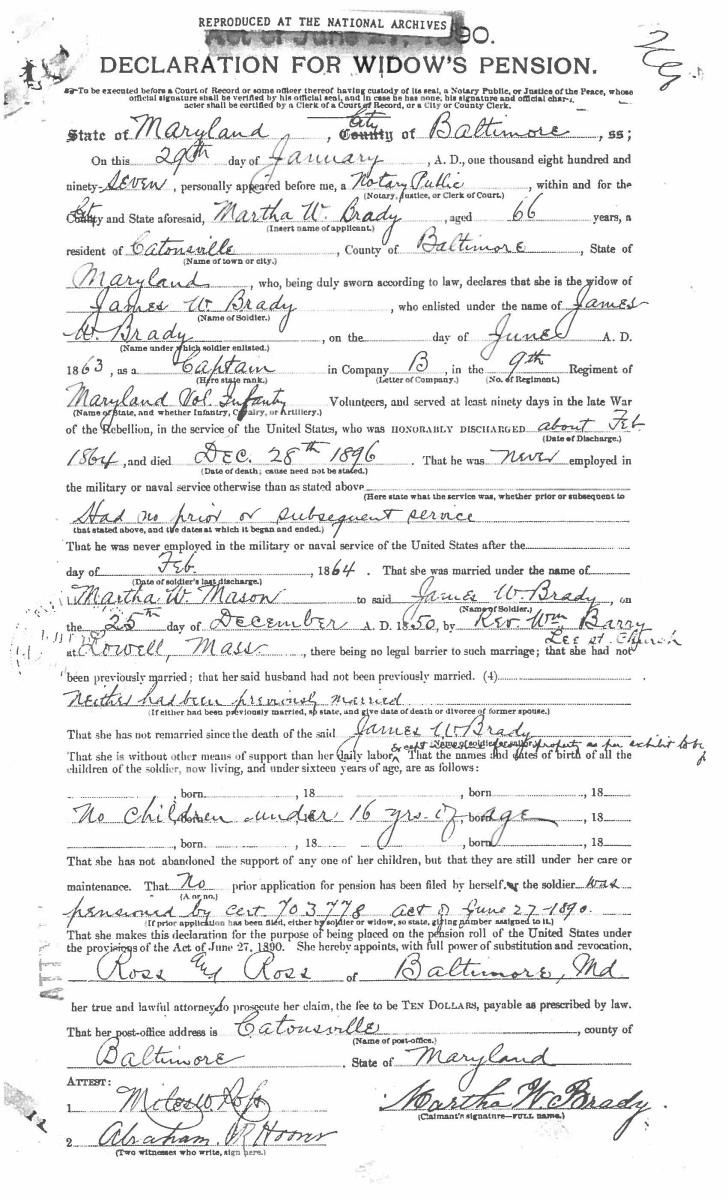 REPRODUCED AT THE NATIONAL ARCHIVES
Act of June 27, 1890.
DECLARATION FOR WIDOW'S PENSION.
To be executed before a Court of Record or some officer thereof having custody of its seal, a Notary Public, or Justice of the Peace, whose
official signature shall be verified by his official seal, and in case he has none, his signature and official char-
acter shall be certified by a Clerk of a Court of Record, or a City or County Clerk.
State of Maryland, City County of Baltimore, ss;
On this 29th day of January, A. D., one thousand eight hundred and
ninety-seven, personally appeared before me, a Notary Public, within and for the
(Notary, Justice, or Clerk of Court.)
City County and State aforesaid, Martha W. Brady, aged 66 years, a
(Insert name of applicant.)
resident of Catonsville, County of Baltimore, State of
(Name of town or city.)
Maryland, who, being duly sworn according to law, declares that she is the widow of
James W Brady, who enlisted under the name of James
(Name of Soldier.)
W. Brady, on the day of June A. D.
(Name under which soldier enlisted.)
1863, as a Captain in Company B, in the 9th Regiment of
(Here state rank.) (Letter of Company.) (No. of Regiment.)
Maryland Vol. Infanty Volunteers, and served at least ninety days in the late War
(Name of State, and whether Infantry, Cavalry, or Artillery.)
of the Rebellion, in the service of the United States, who was HONORABLY DISCHARGED about Feb
(Date of Discharge.)
1864, and died Dec. 28th 1896. That he was never employed in
(Date of death; cause need not be stated.)
the military or naval service otherwise than as stated above
(Here state what the service was, whether prior or subsequent to
Had no prior or subsequent service
that stated above, and the dates at which it began and ended.)
That he was never employed in the military or naval service of the United States after the
day of Feb., 1864. That she was married under the name of
(Date of soldier's last discharge.)
Martha W. Mason to said James W. Brady, on
(Name of Soldier.)
the 25th day of December A. D. 1850, by Rev Wm Barry
Lee st. Church
at Lowell, Mass, there being no legal barrier to such marriage; that she had not
been previously married; that her said husband had not been previously married. (4)
Neither has been previously married
(If either had been previously married, so state, and give date of death or divorce of former spouse.)
That she has not remarried since the death of the said James W Brady
(Name of soldier or sailor)
except property as per exhibit to be
That she is without other means of support than her daily labor. That the names and dates of birth of all the
children of the soldier, now living, and under sixteen years of age, are as follows:
, born , 18 , born , 18
No children under 16 yrs. of age, born , 18
, born , 18 , born , 18
That she has not abandoned the support of any one of her children, but that they are still under her care or
maintenance. That No prior application for pension has been filed by herself, or the soldier was
(A or no.)
pensioned by cert. 703778 act of June 27-1890.
(If prior application has been filed, either by soldier or widow, so state, giving number assigned to it.)
That she makes this declaration for the purpose of being placed on the pension roll of the United States under
the provisions of the Act of June 27, 1890. She hereby appoints, with full power of substitution and revocation,
Ross and Ross of Baltimore, Md.
her true and lawful attorney to prosecute her claim, the fee to be TEN DOLLARS, payable as prescribed by law.
That her post-office address is Catonsville, county of
(Name of post-office.)
Baltimore, State of Maryland
ATTEST:
1 Miles W Ross
Martha W. Brady.
(Claimant's signature—FULL name.)
2 Abraham R Hoover
(Two witnesses who write, sign here.)